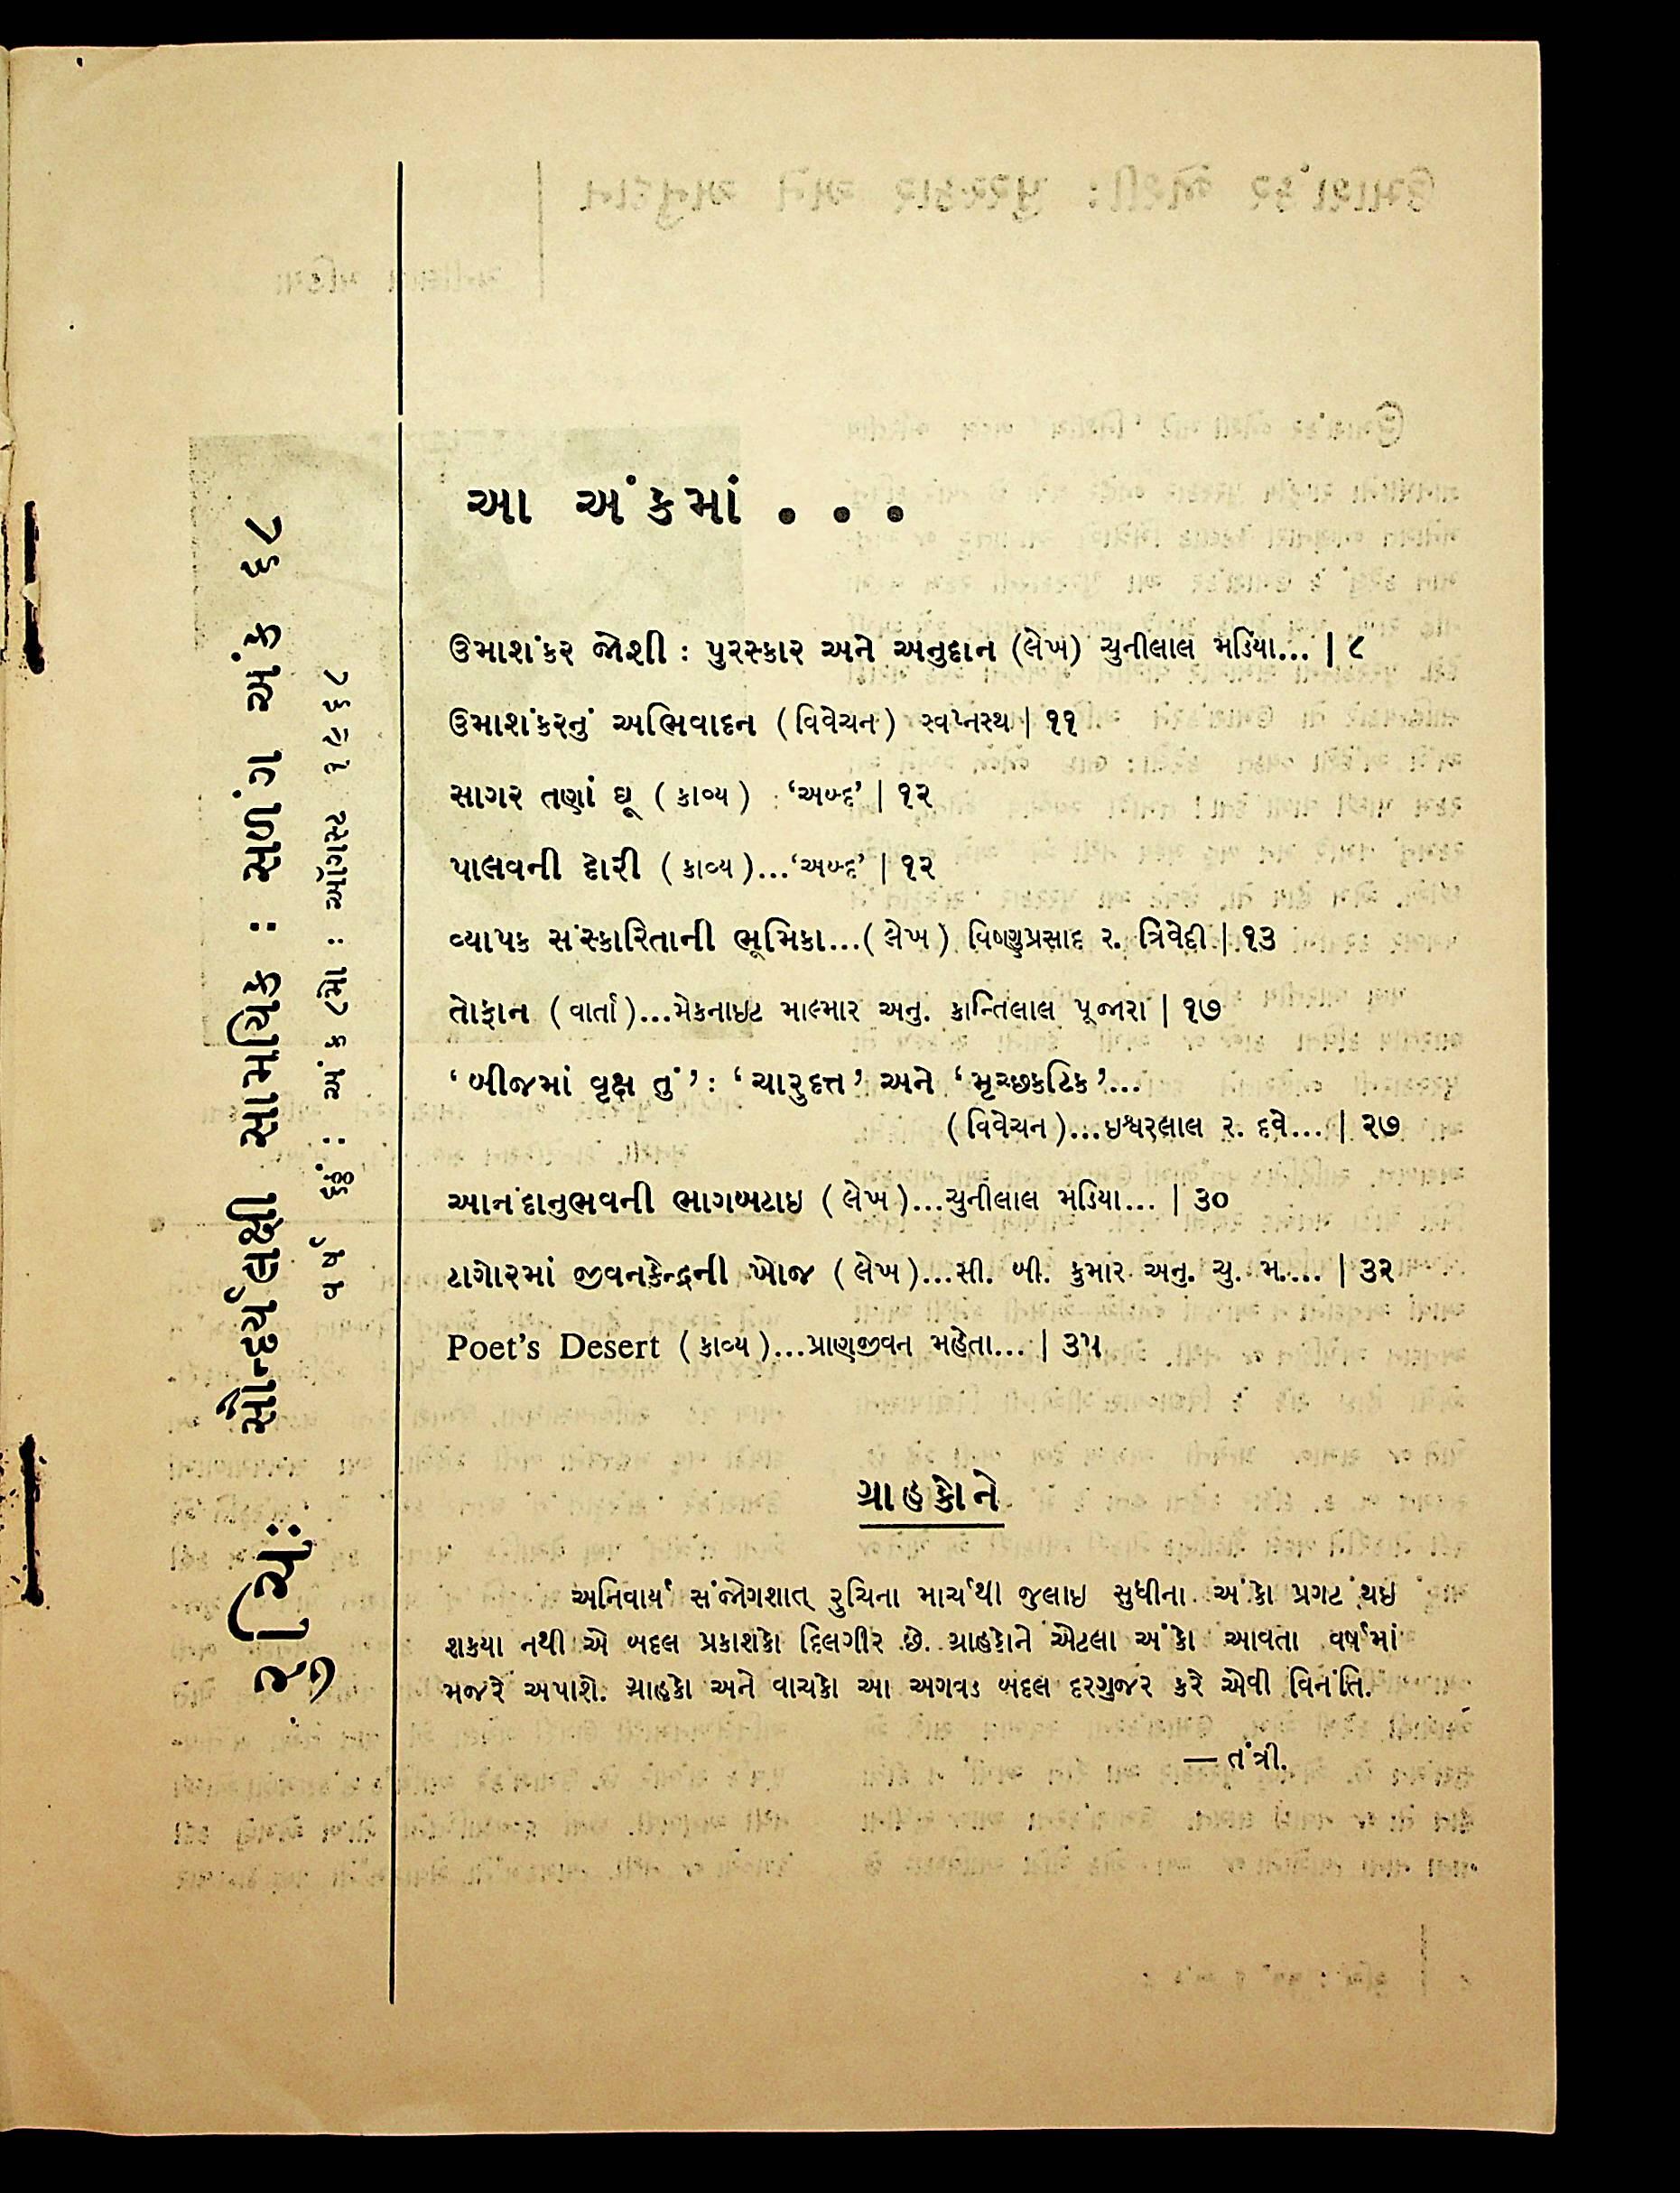 રુચિ: સૌન્દર્યલક્ષી સામયિક : સળંગ અંક ૬૮
વર્ષ ૬ઠ્ઠું : અંક ૮મો : ઑગસ્ટ ૧૯૬૮
આ અંકમાં . . .
ઉમાશંકર જોશી : પુરસ્કાર અને અનુદાન (લેખ) ચુનીલાલ મડિયા... | ૮
ઉમાશંકરનું અભિવાદન (વિવેચન) સ્વપ્નસ્થ | ૧૧
સાગર તણાં ઘૂ (કાવ્ય) : ‘અબ્દ’ | ૧૨
પાલવની દોરી (કાવ્ય)...‘અબ્દ’ | ૧૨
વ્યાપક સંસ્કારિતાની ભૂમિકા...(લેખ) વિષ્ણુપ્રસાદ ર. ત્રિવેદી | ૧૩
તોફાન (વાર્તા)...મેકનાઇટ માલ્માર અનુ. કાન્તિલાલ પૂજારા | ૧૭
‘બીજમાં વૃક્ષ તું’ : ‘ચારુદત્ત’ અને ‘મૃચ્છકટિક’...
(વિવેચન)...ઇશ્વરલાલ ર. દવે... | ૨૭
આનંદાનુભવની ભાગબટાઇ (લેખ)...ચુનીલાલ મડિયા... | ૩૦
ટાગોરમાં જીવનકેન્દ્રની ખોજ (લેખ)...સી. બી. કુમાર અનુ. ચુ. મ.... | ૩૨
Poet's Desert (કાવ્ય)...પ્રાણજીવન મહેતા... | ૩૫
ગ્રાહકોને
અનિવાર્ય સંજોગશાત્ રુચિના માર્ચથી જુલાઇ સુધીના અંકો પ્રગટ થઇ
શકયા નથી એ બદલ પ્રકાશકો દિલગીર છે. ગ્રાહકોને એટલા અંકો આવતા વર્ષમાં
મજરે અપાશે. ગ્રાહકો અને વાચકો આ અગવડ બદલ દરગુજર કરે એવી વિનંતિ.
— તંત્રી.